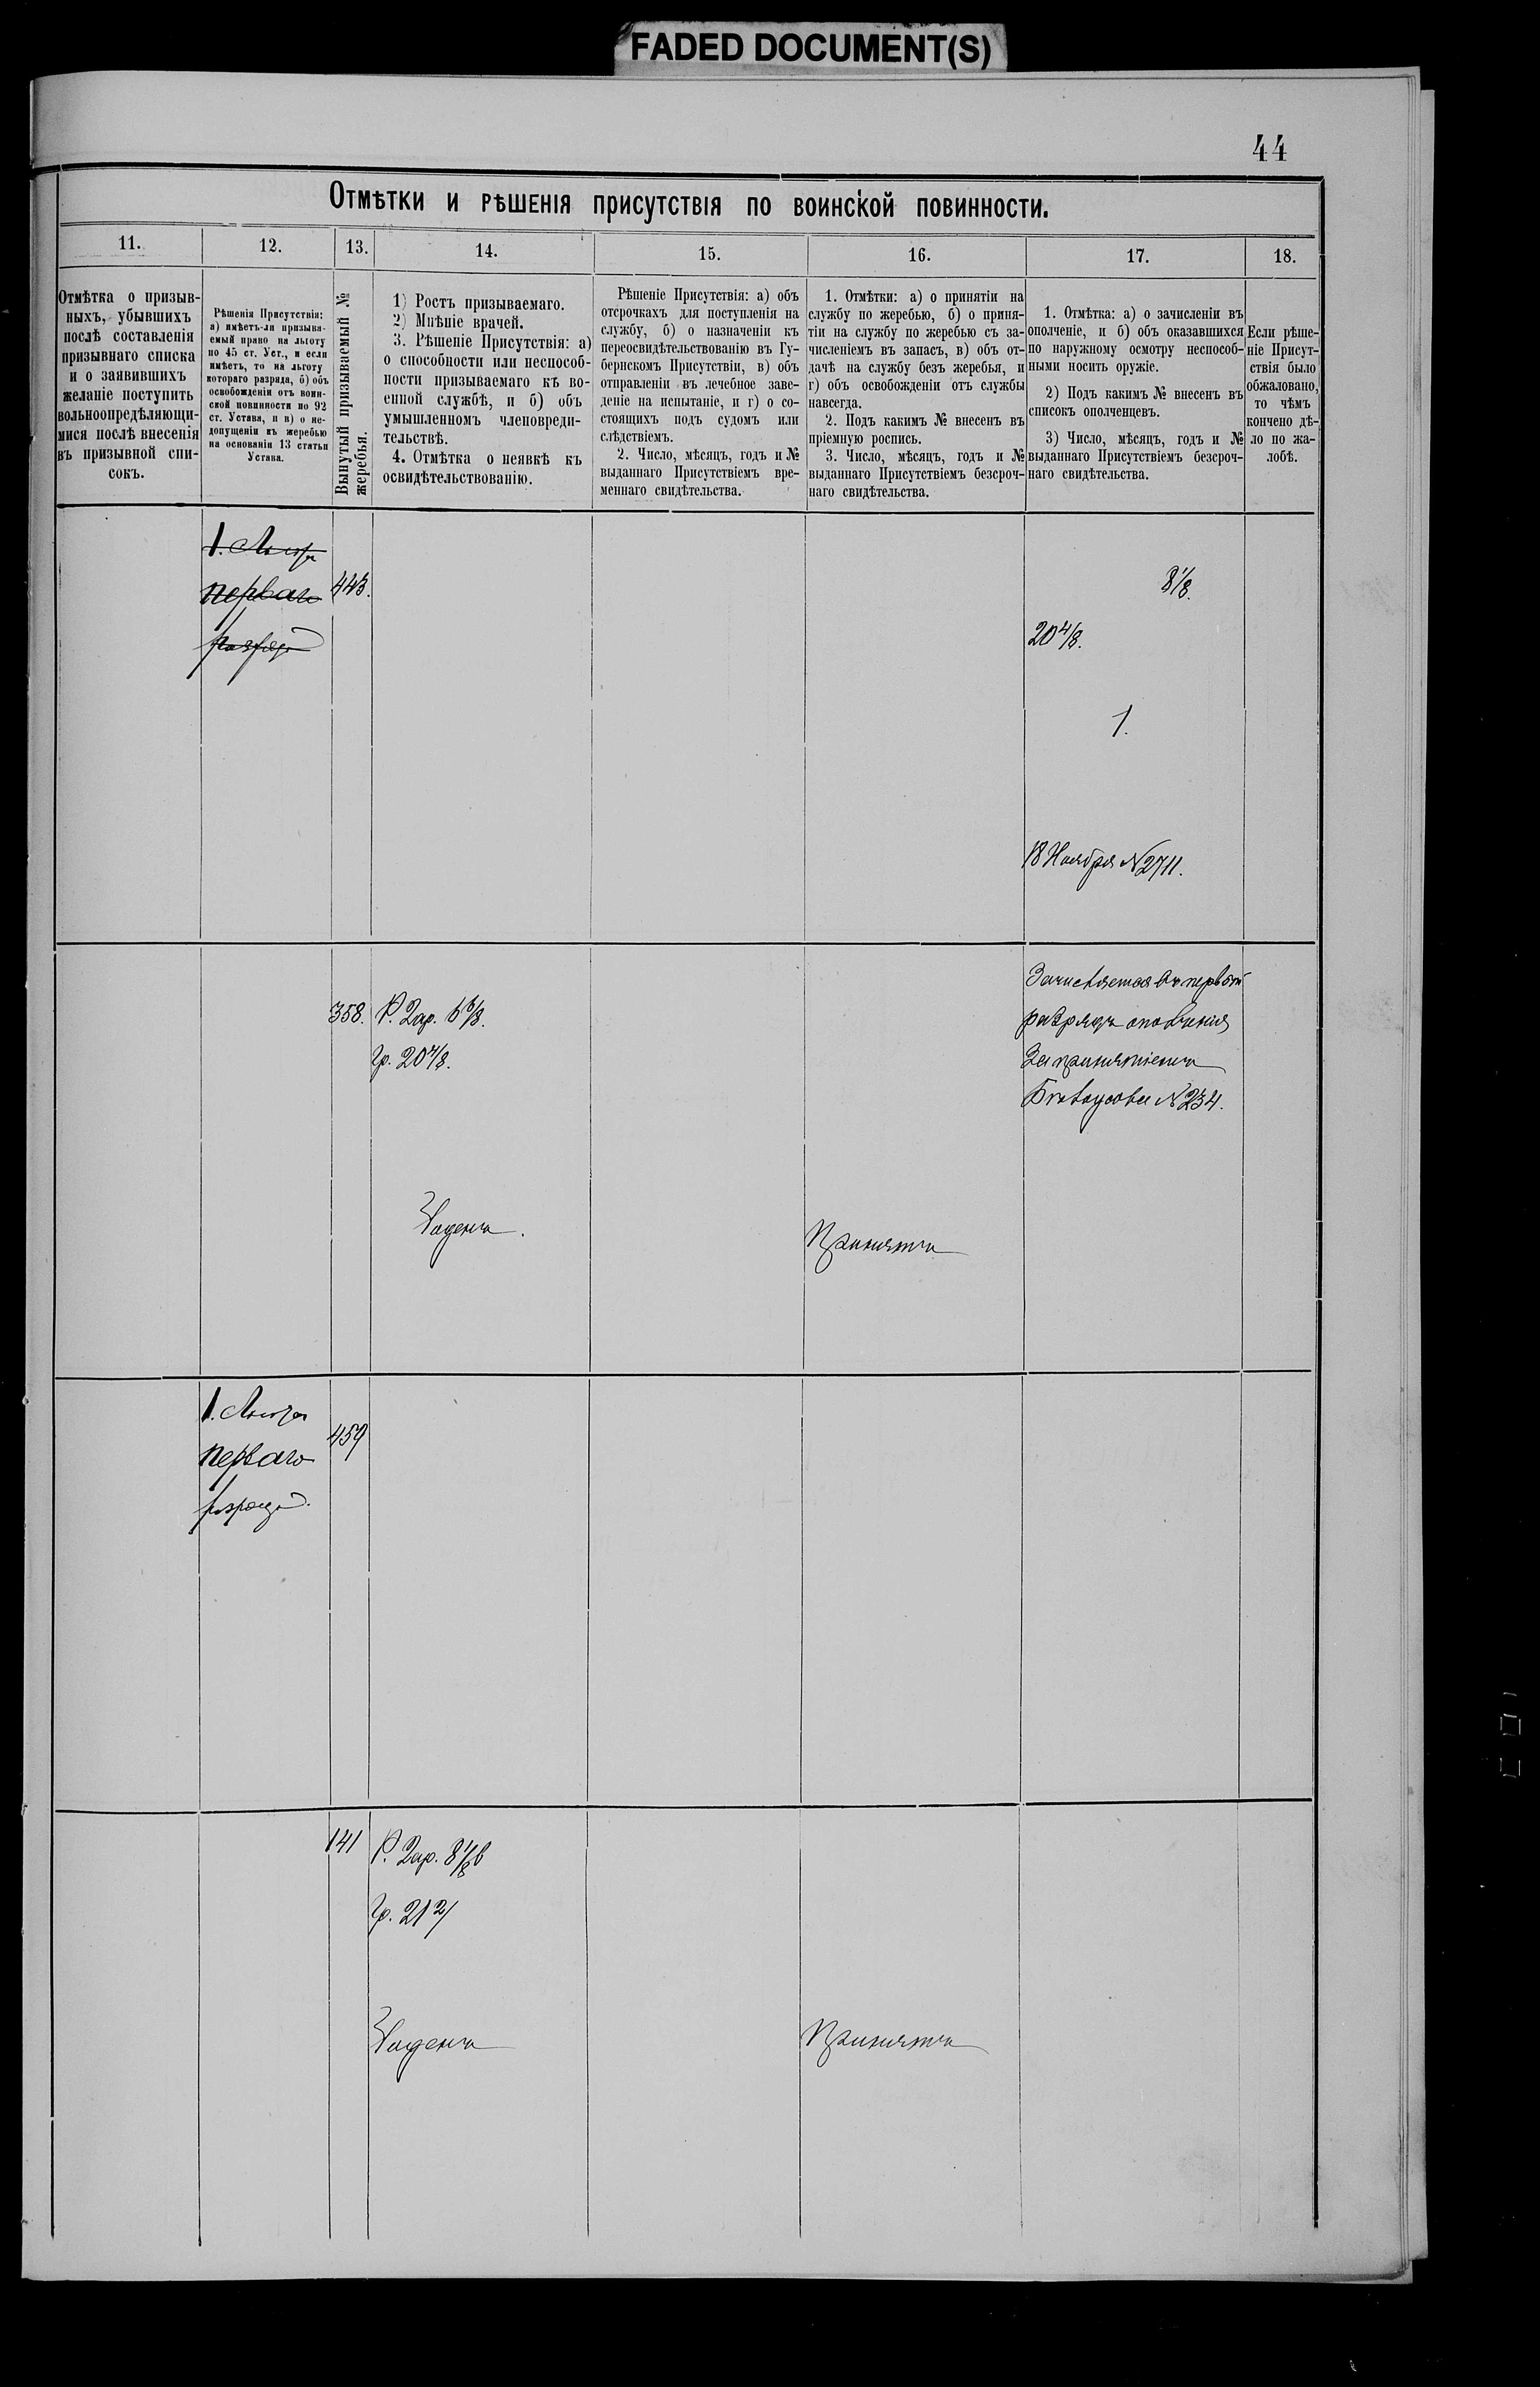 FADED DOCUMENT(S)
44
Отмѣтки и рѣшенія присутствія по воинской повинности.
11.
12.
13.
14.
15.
16.
17.
18.
Отмѣтка о призыв-
ныхъ, убывшихъ
послѣ составленія
призывнаго списка
и о заявившихъ
желаніе поступить
вольноопредѣляющи-
мися послѣ внесенія
въ призывной спи-
сокъ.
Рѣшенія Присутствія:
а) имѣетъ-ли призыва-
емый право на льготу
по 45 ст. Уст., и если
имѣетъ, то на льготу
котораго разряда, б) объ
освобожденіи отъ воин-
ской повинности по 92
ст. Устава, и в) о не-
допущеніи къ жеребью
на основаніи 13 статьи
Устава.
Вынутый призываемый №
жеребья.
1) Ростъ призываемаго.
2) Мнѣніе врачей.
3. Рѣшеніе Присутствія: а)
о способности или неспособ-
ности призываемаго къ во-
енной службѣ, и б) объ
умышленномъ членовреди-
тельствѣ.
4. Отмѣтка о неявкѣ къ
освидѣтельствованію.
Рѣшеніе Присутствія: а) объ
отсрочкахъ для поступленія на
службу, б) о назначеніи къ
переосвидѣтельствованію въ Гу-
бернскомъ Присутствіи, в) объ
отправленіи въ лечебное заве-
деніе на испытаніе, и г) о со-
стоящихъ подъ судомъ или
слѣдствіемъ.
2. Число, мѣсяцъ, годъ и №
выданнаго Присутствіемъ вре-
меннаго свидѣтельства.
1. Отмѣтки: а) о принятіи на
службу по жеребью, б) о приня-
тіи на службу по жеребью съ за-
численіемъ въ запасъ, в) объ от-
дачѣ на службу безъ жеребья, и
г) объ освобожденіи отъ службы
навсегда.
2. Подъ какимъ № внесенъ въ
пріемную роспись.
3. Число, мѣсяцъ, годъ и №
выданнаго Присутствіемъ безсроч-
наго свидѣтельства.
1. Отмѣтка: а) о зачисленіи въ
ополченіе, и б) объ оказавшихся
по наружному осмотру неспособ-
ными носить оружіе.
2) Подъ какимъ № внесенъ въ
списокъ ополченцевъ.
3) Число, мѣсяцъ, годъ и №
выданнаго Присутствіемъ безсроч-
наго свидѣтельства.
Если рѣше-
ніе Присут-
ствія было
обжаловано,
то чѣмъ
кончено дѣ-
ло по жа-
лобѣ.
1. Льгота
перваго
разряда
443.
8 1/8.
20 4/8.
1.
18 Ноября № 2711.
358.
Р. 2ар. 6 6/8.
Гр. 20 4/8.
Годенъ.
Принятъ
Зачисляется въ первый
разрядъ ополченія
За принятіемъ
№ 234.
1. Льгота
перваго
разряда.
459
141
Р. 2ар. 8 1/8 в
Гр. 21 2/
Годенъ
Принятъ